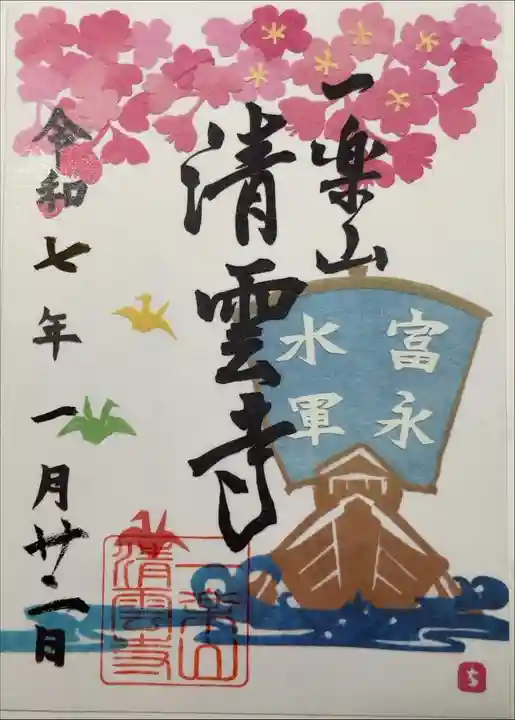 一楽山
清雲寺
富永
水軍
令和七年一月廿一日
一楽山
清雲寺